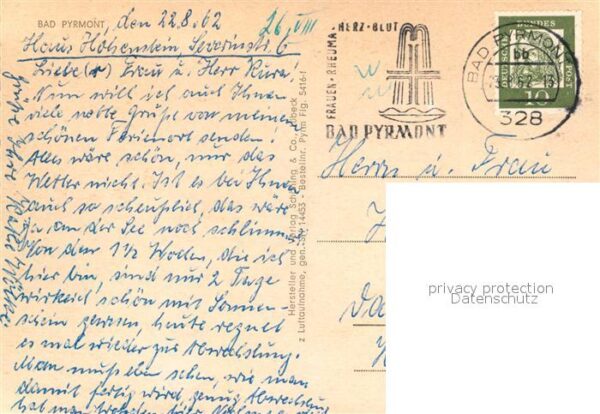 BAD PYRMONT, den 22.8.62
26. VIII
Haus Hohenstein, Severinstr. 6
Liebe(r) Frau u. Herr Kura!
Nun will ich auch Ihnen
viele nette Grüße von meinem
schönen Ferienort senden!
Alles wäre schön, nur das
Wetter nicht. Ist es bei Ihnen
auch so scheußlich, das wär
ja an der See noch schlimmer
Von den 1½ Wochen, die ich
hier bin, sind nur 2 Tage
wirklich schön mit Sonnen-
schein gewesen, heute regnet
es mal wieder zur Abwechslung.
Man muß eben sehen, wie man
damit fertig wird, genug Abwechslung
hat man
Ihre Käthe
Hersteller und Verlag Schöning & Co., Lübeck
z Luftaufnahme, gen. 14453 - Bestellnr. Pyrm Flg. 5416-f
FRAUEN-RHEUMA-HERZ-BLUT
BAD PYRMONT
BAD PYRMONT
bb
328
DEUTSCHE BUNDESPOST
10
Herrn u. Frau
privacy protection
Datenschutz